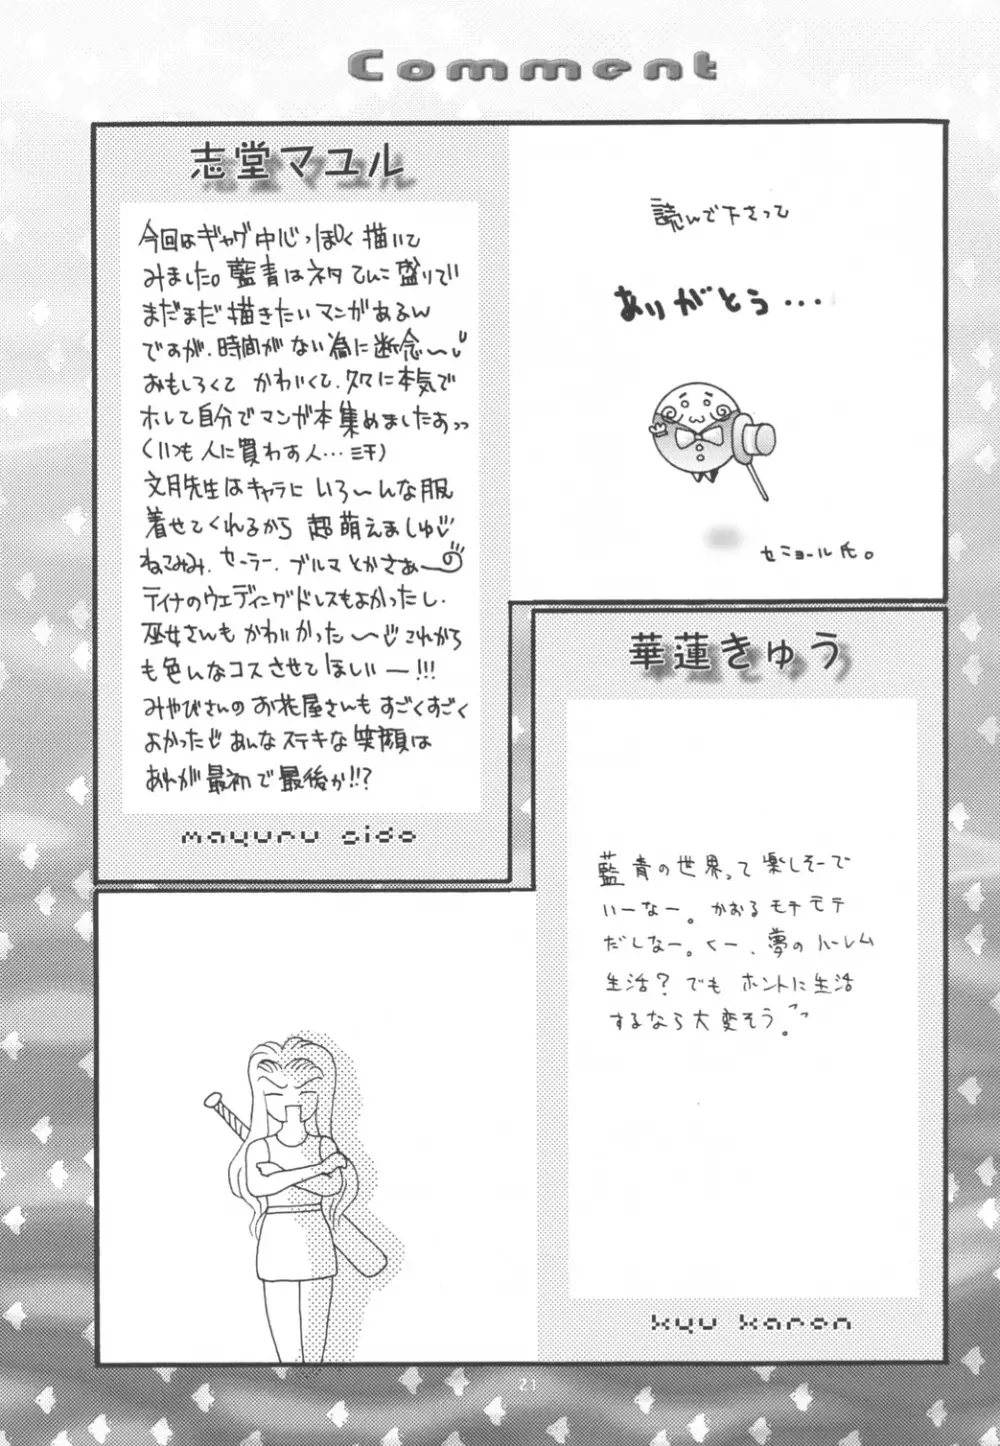 Comment
志堂マユル
今回はギャグ中心っぽく描いて
みました。藍青はネタてんこ盛りで
まだまだ描きたいマンガがあるん
ですが、時間がない為に断念〜
おもしろくて かわいくて、久々に本気で
ホレて自分でマンガ本集めましたよっっ
(いつも人に買わす人…汗)
文月先生はキャラに いろ〜んな服
着せてくれるから 超萌えましゅ
ねこみみ、セーラー、ブルマとかさぁー
ティナのウェディングドレスもよかったし、
巫女さんもかわいかった〜 これから
も色んなコスさせてほしいー!!!
みやびさんのお花屋さんもすごくすごく
よかった あんなステキな笑顔は
あれが最初で最後か!!?
mayuru sido
読んで下さって
ありがとう...
セミョール氏。
華蓮きゅう
藍青の世界って楽しそーで
いーなー。かおるモテモテ
だしなー。くー、夢のハーレム
生活?でもホントに生活
するなら大変そう。
kyu karen
21